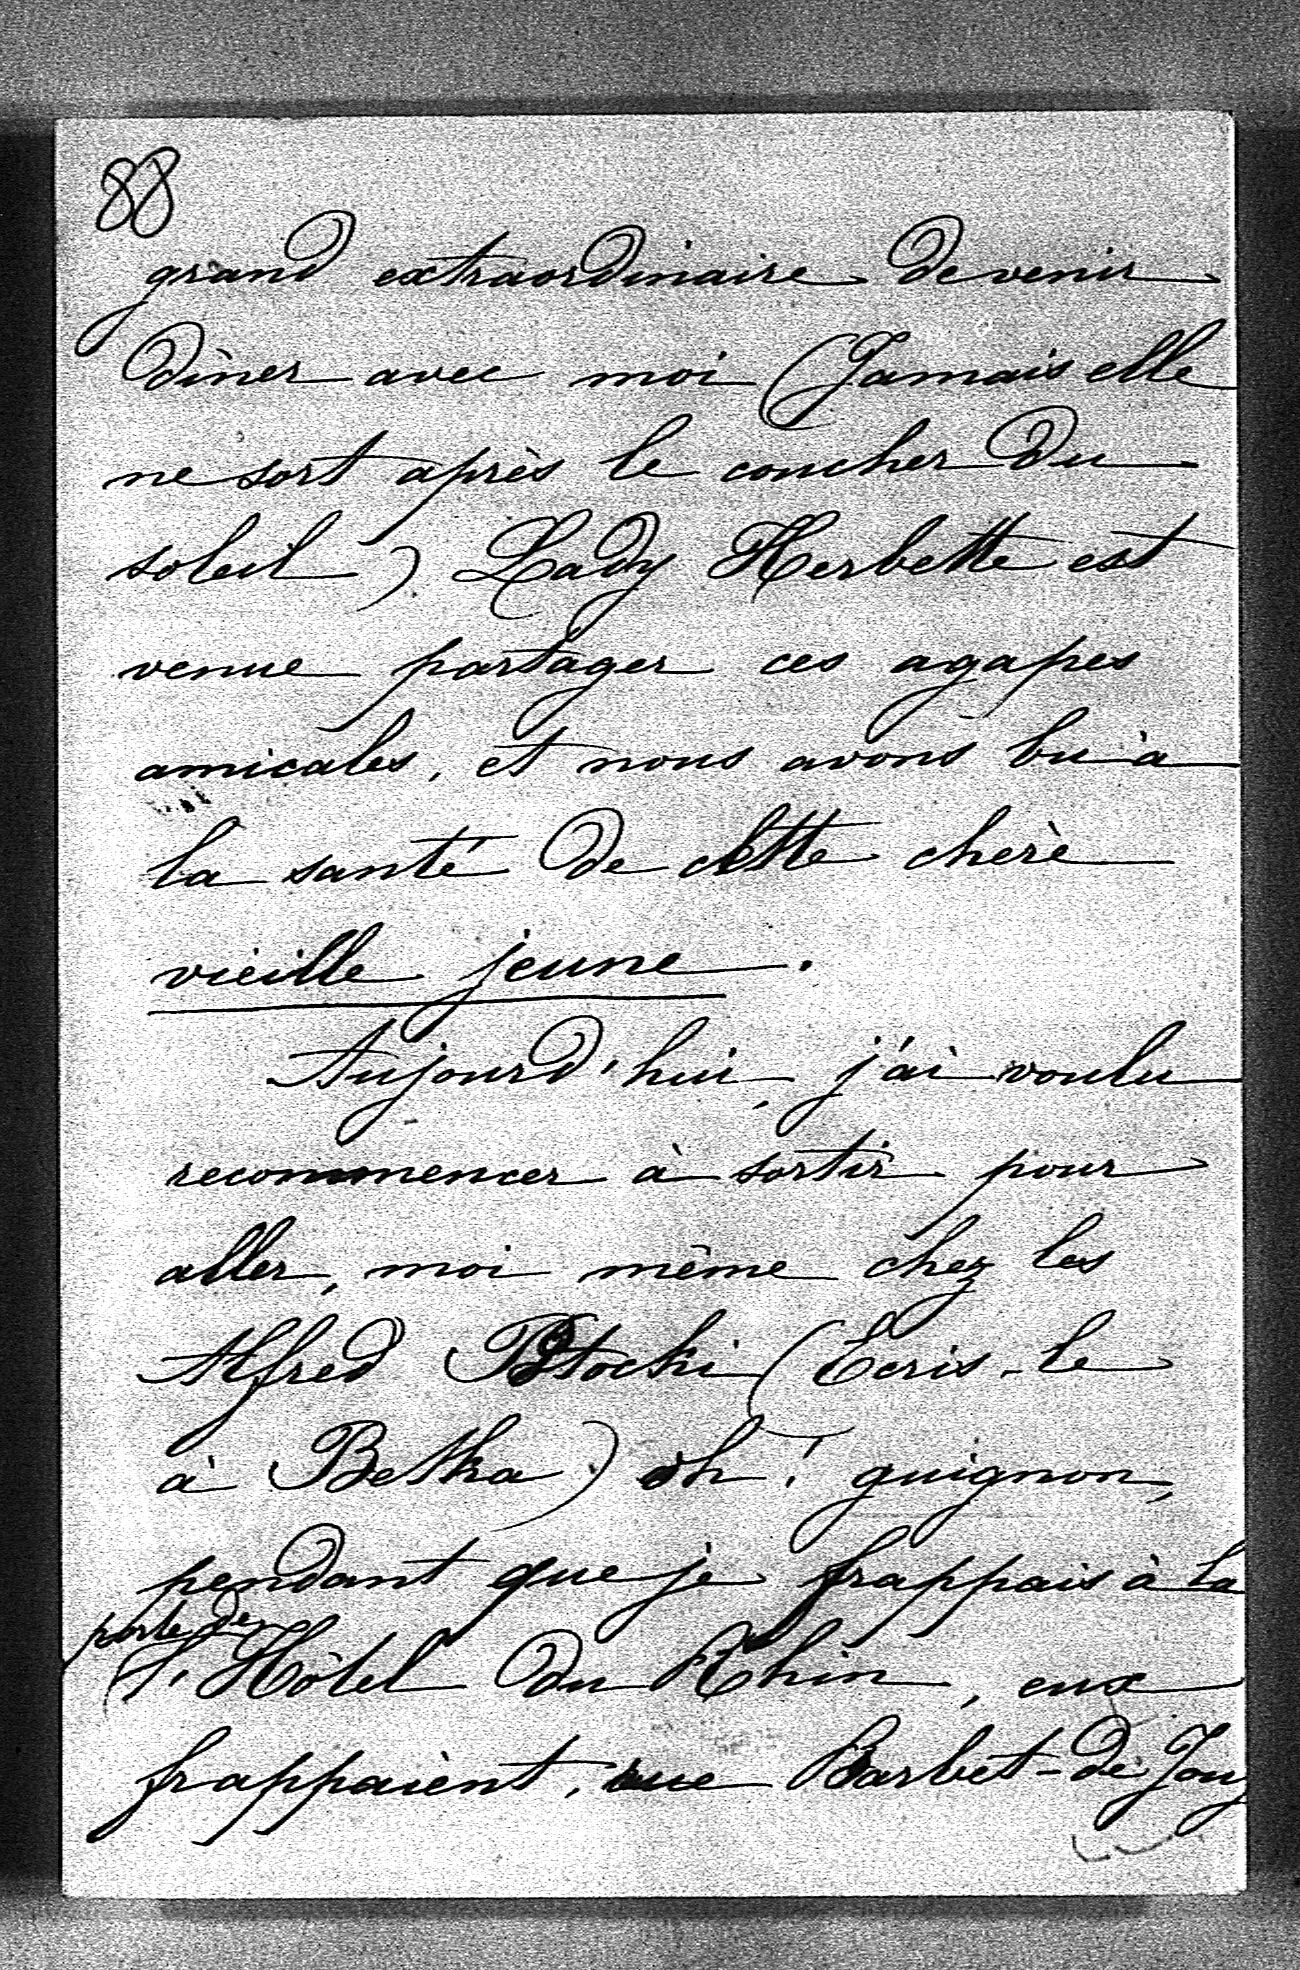 88
grand extraordinaire de venir
dîner avec moi (Jamais elle
ne sort après le coucher du
soleil) Lady Herbette est
venue partager ces agapes
amicales, et nous avons bu à
la santé de cette chère
vieille jeune.
Aujourd'hui, j'ai voulu
recommencer à sortir pour
aller, moi même chez les
Alfred Potocki (Ecris-le
à Betka) oh! guignon,
pendant que je frappais à la
porte de
l'Hôtel du Rhin, eux
frappaient, rue Barbet-de Jouy